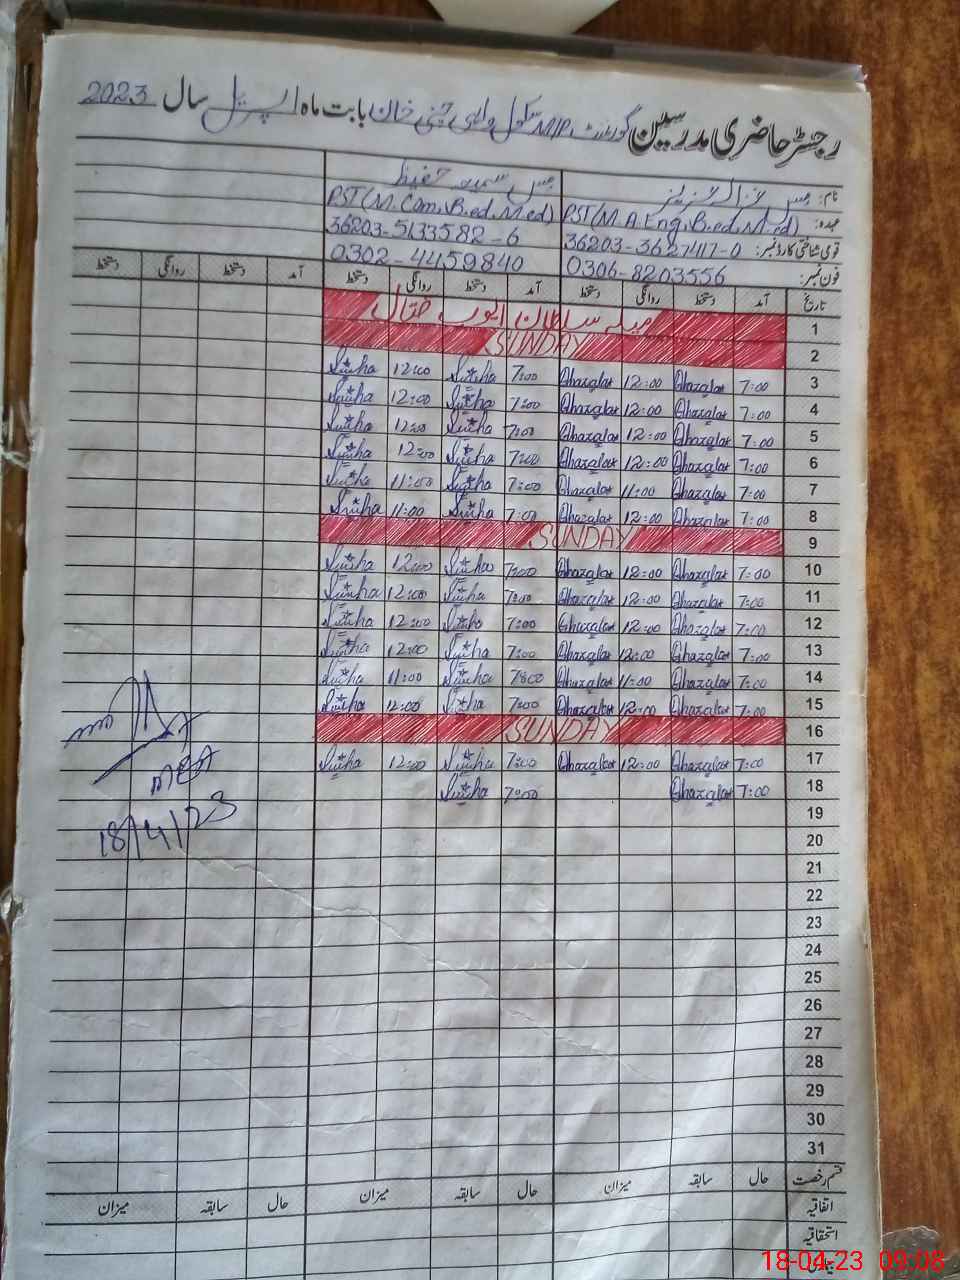 رجسٹر حاضری مدرسین گورنمنٹ M/P سکول واہی جنی خان بابت ماہ اپریل سال 2023
نام: مس غزالہ عزیز مس سمیعہ حفیظ
عہدہ: PST(M.A.Eng,B.ed,M-ed) PST(M.Com,B.ed,M.ed)
قومی شناختی کارڈ نمبر: 36203-3627417-0 36203-5133582-6
فون نمبر: 0306-8203556 0302-4459840
تاریخ آمد دستخط روانگی دستخط آمد دستخط روانگی دستخط آمد دستخط روانگی دستخط
1 میلہ سلطان ایوب قتال
2 SUNDAY
3 7:00 Ghazala 12:00 Ghazala 7:00 12:00
4 7:00 Ghazala 12:00 Ghazala 7:00 12:00
5 7:00 Ghazala 12:00 Ghazala 7:00 12:00
6 7:00 Ghazala 12:00 Ghazala 7:00 12:00
7 7:00 Ghazala 11:00 Ghazala 7:00 11:00
8 7:00 Ghazala 12:00 Ghazala 7:00 11:00
9 SUNDAY
10 7:00 Ghazala 12:00 Ghazala 7:00 12:00
11 7:00 Ghazala 12:00 Ghazala 7:00 12:00
12 7:00 Ghazala 12:00 Ghazala 7:00 12:00
13 7:00 Ghazala 12:00 Ghazala 7:00 12:00
14 7:00 Ghazala 11:00 Ghazala 7:00 11:00
15 7:00 Ghazala 12:00 Ghazala 7:00 12:00
16 SUNDAY
17 7:00 Ghazala 12:00 Ghazala 7:00 12:00
18 7:00 Ghazala 7:00
MEA
18/4/23
19
20
21
22
23
24
25
26
27
28
29
30
31
قسم رخصت حال سابقہ میزان حال سابقہ میزان حال سابقہ میزان
اتفاقیہ
استحقاقیہ
18-04-23 09:08